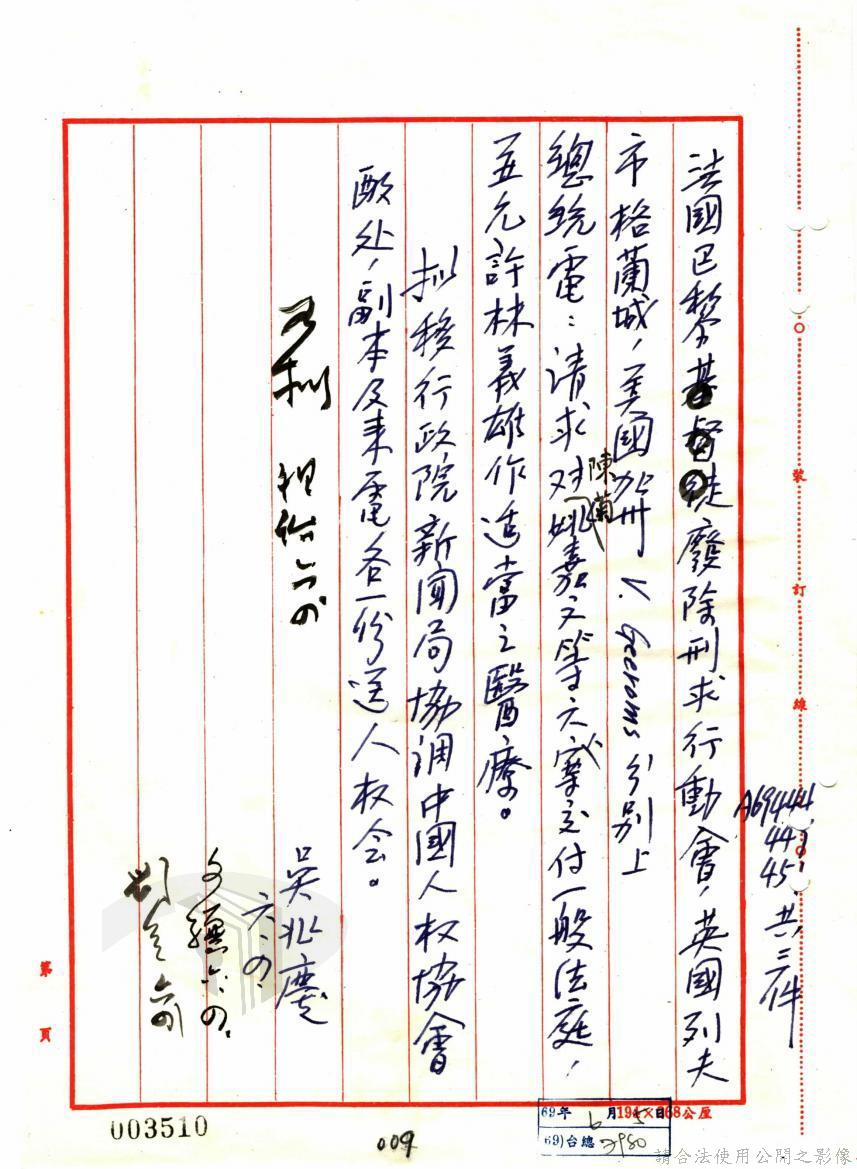 A69444
445
451 共三件
法國巴黎基督徒廢除刑求行動會，英國列夫
市格蘭城，美國加州 V. Geeroms 分別上
總統電：請求对姚嘉文陳菊等六寨交付一般法庭，
並允許林義雄作适當之醫療。
拟移行政院新聞局協调中國人权協會
酌处，副本及来電各一份送人权会。
吳兆慶
六、四
裝
訂
線
第
頁
194×268公厘
69年6月5日
(69)台總2980
003510
009
請合法使用公開之影像